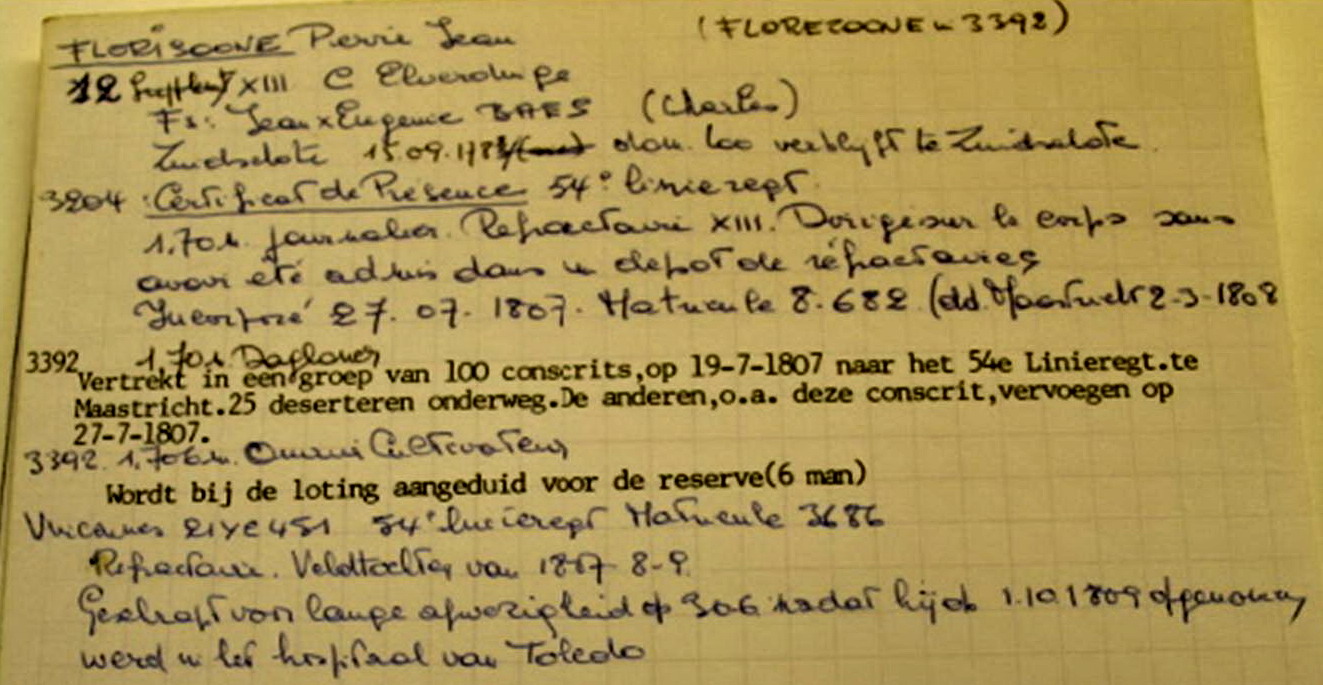 FLORISOONE Pierre Jean (FLOREZOONE in 3392)
12 XIII C Elverdinge
Fs: Jean x Eugenie BAES (Charles)
Zuidschote 15.09.178 dom. Loo verblijft te Zuidschote
3204 : Certificat de Présence 54e linieregt.
1.70 journalier. Refractaire XIII. Dirigé sur le corps sans
avoir été admis dans un depot de réfractaires
Incorporé 27.07.1807. Matricule 8.682 (dd. Maastricht 2-3-1808
3392 1.70 Dagloner
Vertrekt in een groep van 100 conscrits,op 19-7-1807 naar het 54e Linieregt.te
Maastricht.25 deserteren onderweg.De anderen,o.a. deze conscrit,vervoegen op
27-7-1807.
3392. 1,706m. Cultivateur
Wordt bij de loting aangeduid voor de reserve(6 man)
Vincennes 21YC451 54e linieregt Matricule 3686
Refractaire. Veldtochten van 1807-8-9
Geschrapt voor lange afwezigheid op nadat hij op 1.10.1809 opgenomen
werd in het hospitaal van Toledo